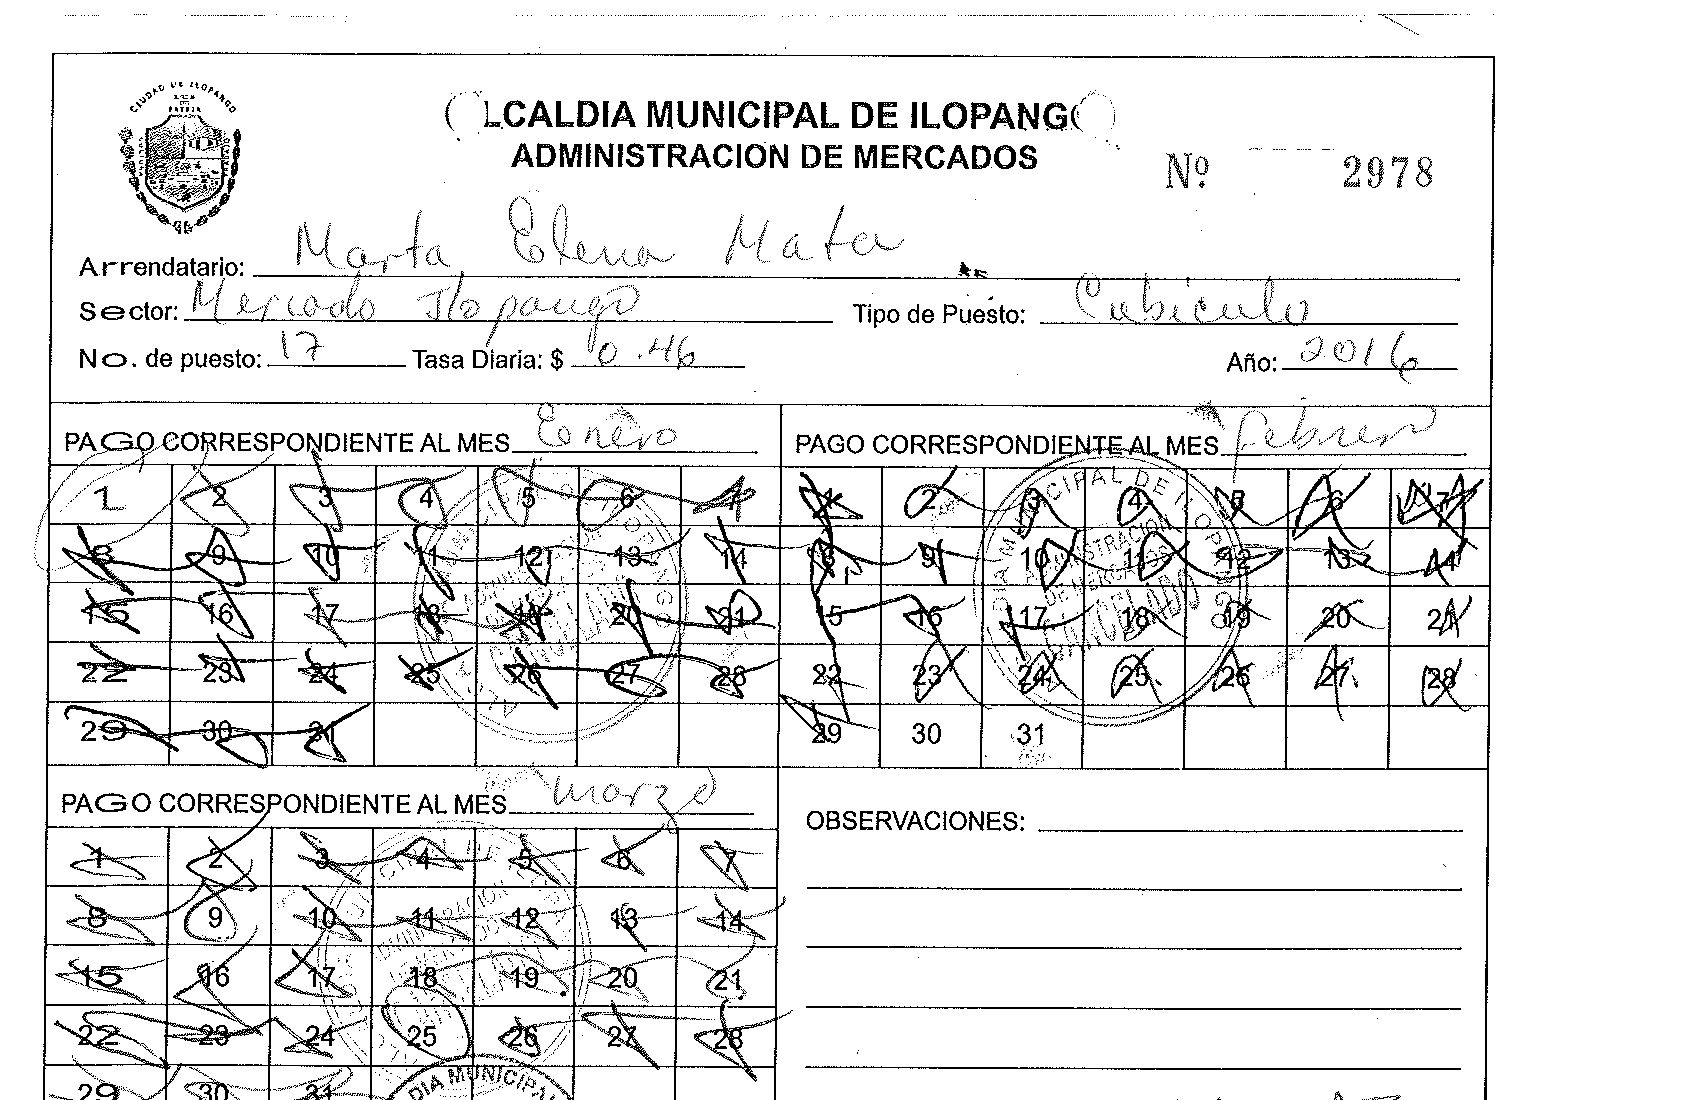 CIUDAD DE ILOPANGO
LCALDIA MUNICIPAL DE ILOPANG
ADMINISTRACION DE MERCADOS
Nº 2978
Arrendatario: Marta Elena Mata
Sector: Mercado Ilopango Tipo de Puesto: Cubiculo
No. de puesto: 17 Tasa Diaria: $ 0.46 Año: 2016
PAGO CORRESPONDIENTE AL MES Enero
1 2 3 4 5 6 7
8 9 10 11 12 13 14
15 16 17 18 19 20 21
22 23 24 25 26 27 28
29 30 31
PAGO CORRESPONDIENTE AL MES febrero
1 2 3 4 5 6 7
8 9 10 11 12 13 14
15 16 17 18 19 20 21
22 23 24 25 26 27 28
29 30 31
CIPAL DE ILOPANGO
ADMINISTRACION
DE MERCADOS
CANCELADO
PAGO CORRESPONDIENTE AL MES marzo
1 2 3 4 5 6 7
8 9 10 11 12 13 14
15 16 17 18 19 20 21
22 23 24 25 26 27 28
29 30 31
DIA MUNICIPAL
OBSERVACIONES: